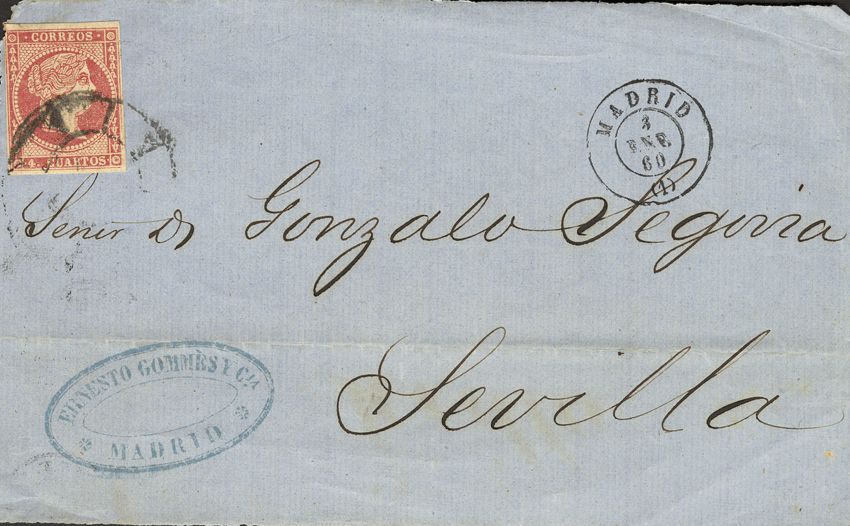 CORREOS
4. CUARTOS
MADRID
3
ENE
60
(1)
Señor Dn Gonzalo Segovia
Sevilla
ERNESTO GOMMÈS Y Cia
MADRID